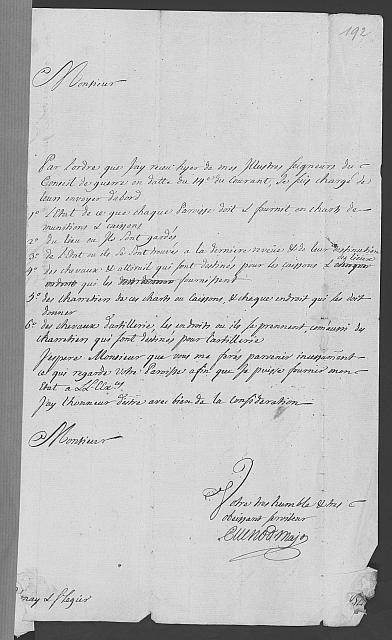 192
Monsieur
Par l'ordre que J'ay receu hyer de mes Illustres Seigneurs du
Conseil de guerre en datte du 14e du Courant, Je suis chargé de
leurs envoyer d'abord
1o L'Etat de ce que chaque Paroisse doit & fournit en charts de
munitions & caissons
2o du lieu ou Ils sont gardés
3o de l'Etat ou ils se sont trouvés a la derniere reveüe & de leur destination
4o des chevaux & atteleül qui sont destinés pour les caissons &
qui les fournissent
5o des charretiers de ces charts ou caissons, & chaque endroit qui les doit
donner
6o des chevaux d'artillerie, les endroits ou ils se prennent, comme aussi des
charretiers qui sont destinés pour l'artillerie
J'espere Monsieur que vous me ferés parvenir incessament
ce qui regarde vôtre Paroisse afin que Je puisse fournir mon
Etat a LL. Exes.
J'ay l'honneur d'estre avec bien de la consideration
Monsieur
Votre tres humble & tres
obeissant serviteur
Cuenod Major
& St Legier